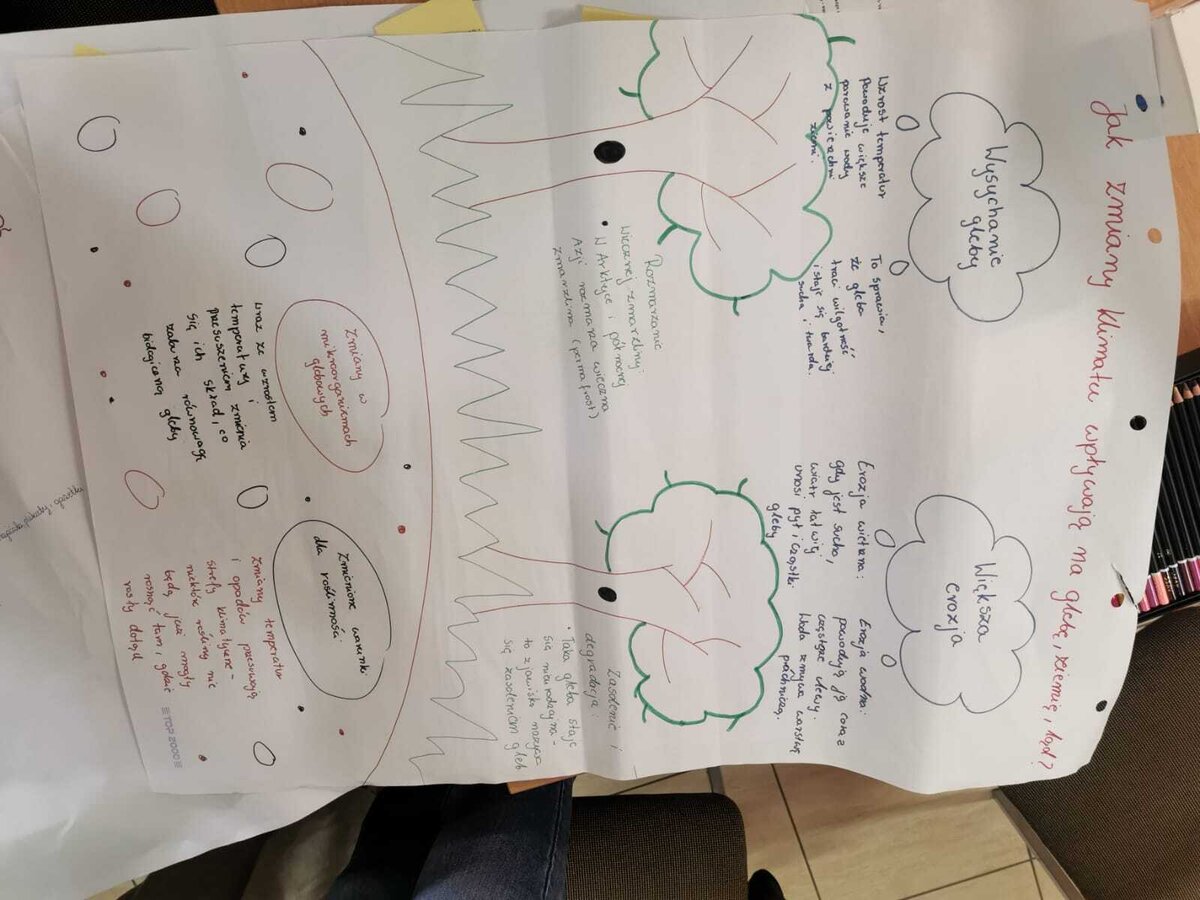 Jak zmiany klimatu wpływają na glebę, ziemię, ląd?
Wysychanie
gleby
Wzrost temperatur
powoduje większe
parowanie wody
z powierzchni
ziemi.
To sprawia,
że gleba
traci wilgotność
i staje się bardziej
sucha i twarda.
Większa
erozja
Erozja wietrzna:
gdy jest sucho,
wiatr łatwiej
unosi pył i cząstki
gleby
Erozja wodna:
powodują ją coraz
częstsze ulewy.
Woda zmywa warstwę
próchniczą.
Rozmarzanie
wiecznej zmarzliny:
• W Arktyce i północnej
Azji rozmarza wieczna
zmarzlina (permafrost)
Zasolenie i
degradacja:
• Taka gleba staje
się nieurodzajna -
to zjawisko nazywa
się zasoleniem gleb
Zmiany w
mikroorganizmach
glebowych
wraz ze wzrostem
temperatury i
przesuszeniem zmienia
się ich skład, co
zaburza równowagę
biologiczną gleby
Zmienione warunki
dla roślinności
Zmiany temperatur
i opadów przesuwają
strefy klimatyczne -
niektóre rośliny nie
będą już mogły
rosnąć tam, gdzie
rosły dotąd
TOP 2000